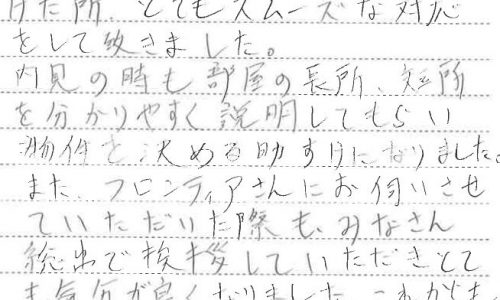 けた所、とてもスムーズな対応
をして頂きました。
内見の時も部屋の長所、短所
を分かりやすく説明してもらい
物件を決める助すけになりました。
また、フロンティアさんにお伺いさせ
ていただいた際も、みなさん
総出で挨拶していただきとて
も気分が良くなりました。これからも